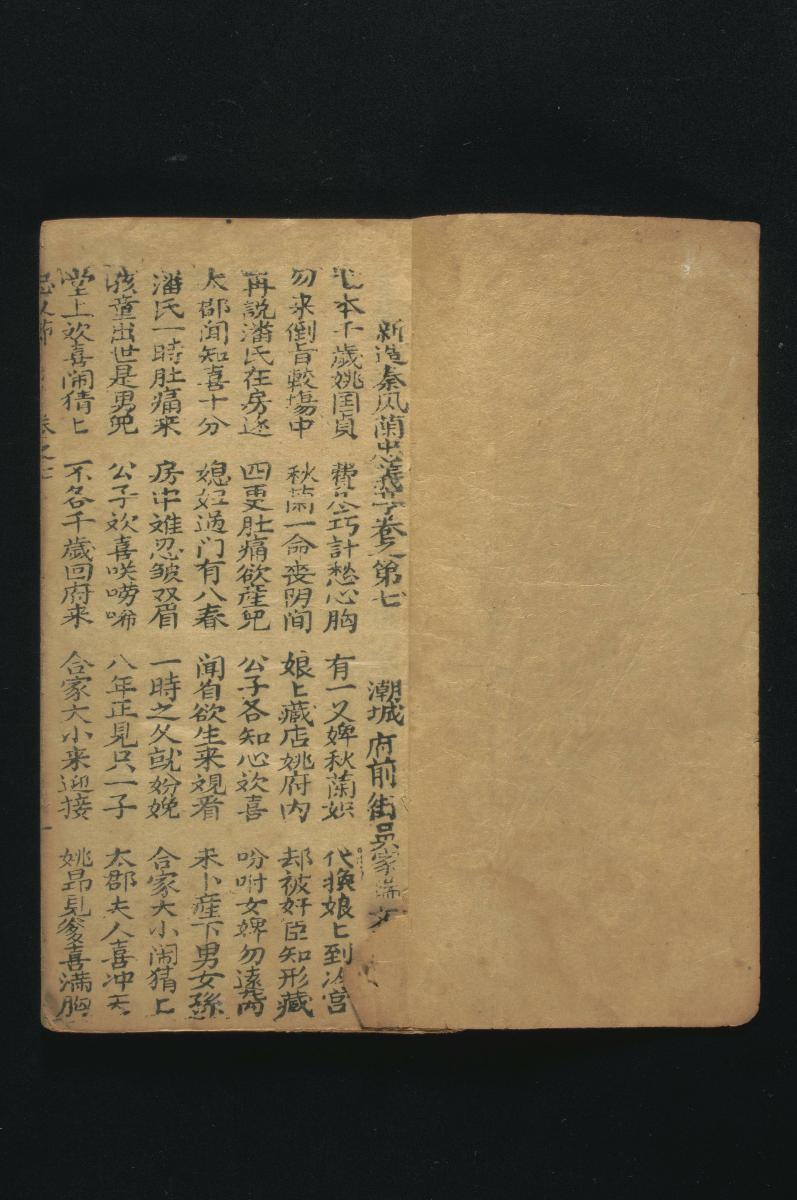 新造秦凤蘭忠義亭卷之第七 潮城府前街吳家瑞文
本千歲姚国貞 費尽巧計愁心胸 有一义婢秋蘭娘 代换娘〻到冷宫
勿来倒旨較場中 秋蘭一命丧阴间 娘〻藏店姚府内 却被奸臣知形藏
再説潘氏在房逐 四更肚痛欲産兒 公子各知心欢喜 吩咐女婢勿遠离
太郡闻知喜十分 媳妇过门有八春 闻着欲生来观看 未卜産下男女孫
潘氏一時肚痛来 房中难忍皱双眉 一時之久就分娩 合家大小闹猜〻
孩童出世是男兒 公子欢喜唉唠唏 八年正見只一子 太郡夫人喜冲天
堂上欢喜闹猜〻 不各千歲回府来 合家大小来迎接 姚昂見爹喜满胸
卷之七 一